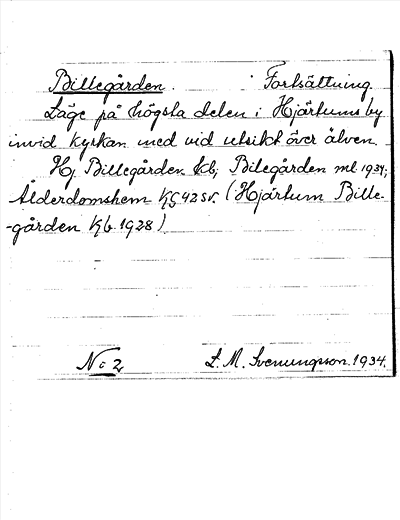 Billegården. Fortsättning.
Läge på högsta delen i Hjärtums by
invid kyrkan med vid utsikt över älven.
Hj. Billegården kb, Bilegården ml 1934;
Ålderdomshem KG 42 sv. (Hjärtum Bille-
-gården Kb 1928)
No 2 L. M. Svenungsson. 1934.